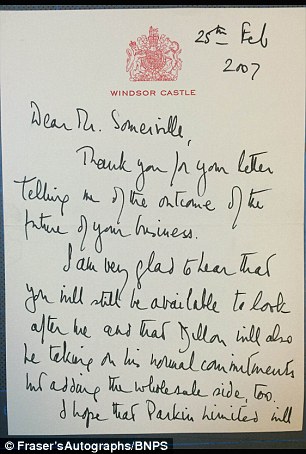 25th Feb
2007
WINDSOR CASTLE
Dear Mr. Somerville,
Thank you for your letter
telling me of the outcome of the
future of your business.
I am very glad to hear that
you will still be available to look
after me and that Dillon will also
be taking on his normal commitments
but adding the wholesale side, too.
I hope that Parkin Limited will
© Fraser'sAutographs/BNPS